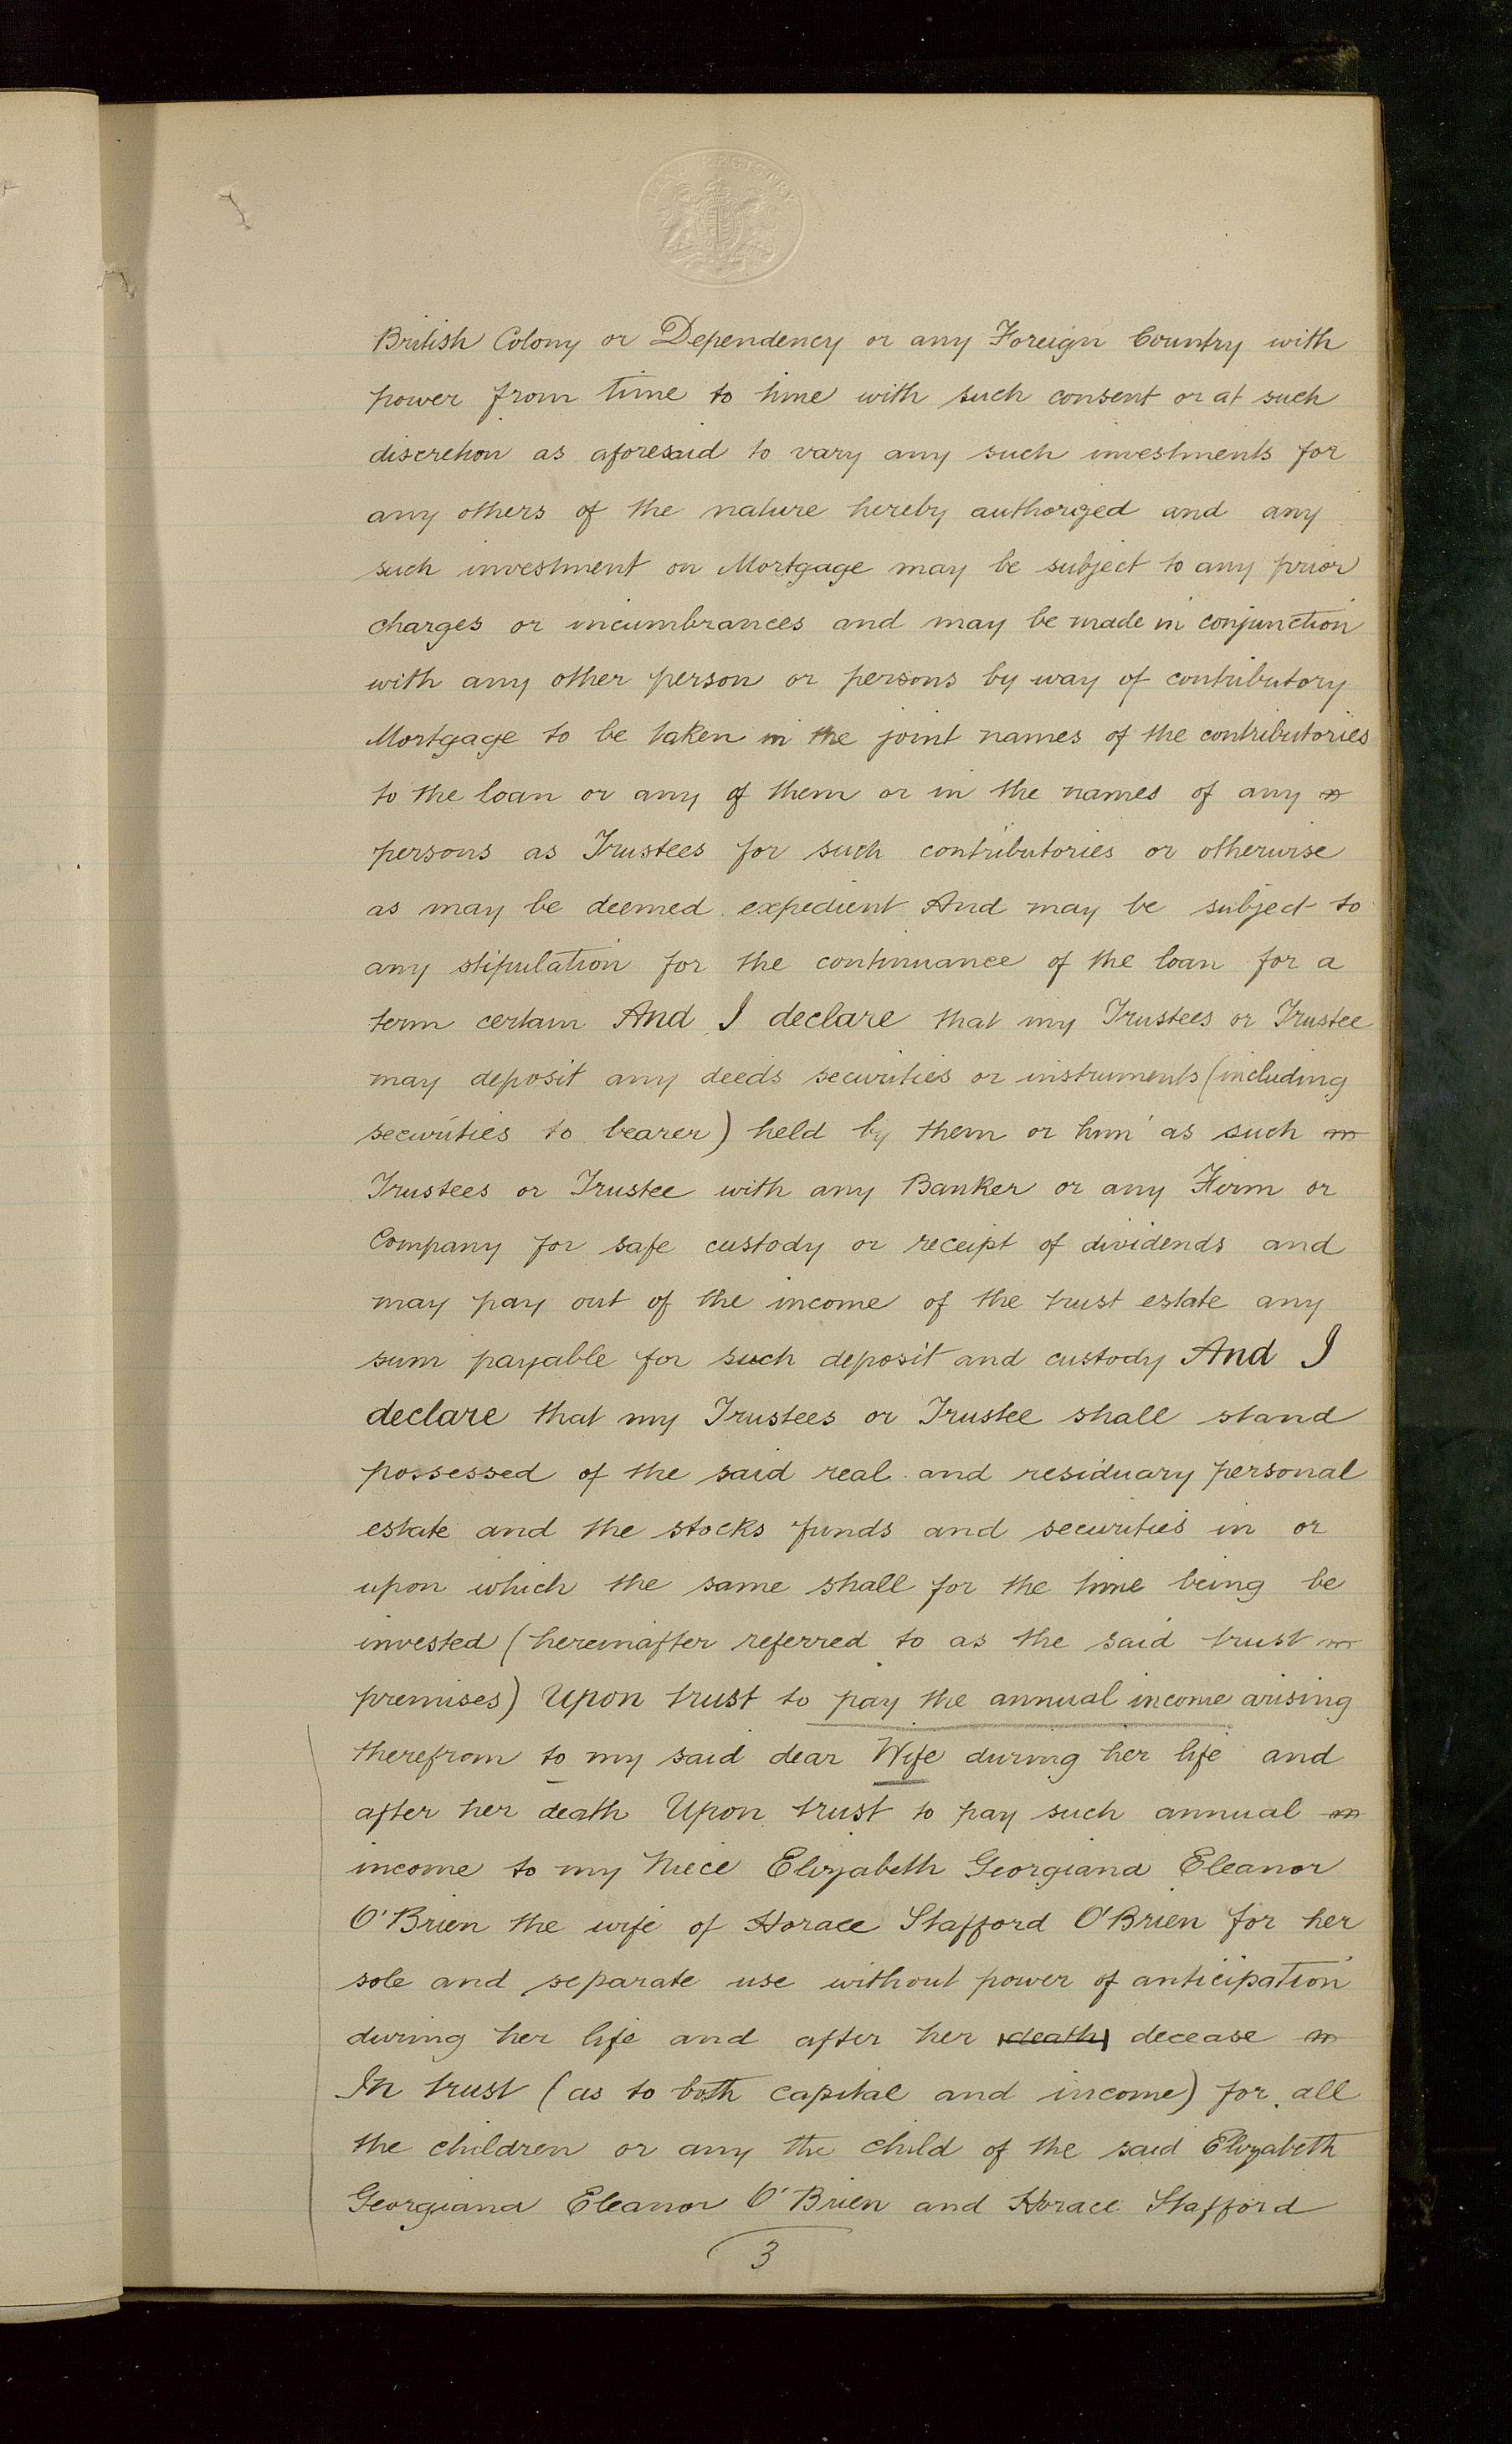 British Colony or Dependency or any Foreign Country with
power from time to time with such consent or at such
discretion as aforesaid to vary any such investments for
any others of the nature hereby authorized and any
such investment on Mortgage may be subject to any prior
charges or incumbrances and may be made in conjunction
with any other person or persons by way of contributory
Mortgage to be taken in the joint names of the contributories
to the loan or any of them or in the names of any
persons as Trustees for such contributories or otherwise
as may be deemed expedient And may be subject to
any stipulation for the continuance of the loan for a
term certain And I declare that my Trustees or Trustee
may deposit any deeds securities or instruments (including
securities to bearer) held by them or him as such
Trustees or Trustee with any Banker or any Firm or
Company for safe custody or receipt of dividends and
may pay out of the income of the trust estate any
sum payable for such deposit and custody And I
declare that my Trustees or Trustee shall stand
possessed of the said real and residuary personal
estate and the stocks funds and securities in or
upon which the same shall for the time being be
invested (hereinafter referred to as the said trust
premises) Upon trust to pay the annual income arising
therefrom to my said dear Wife during her life and
after her death Upon trust to pay such annual
income to my Niece Elizabeth Georgiana Eleanor
O'Brien the wife of Horace Stafford O'Brien for her
sole and separate use without power of anticipation
during her life and after her death decease
In trust (as to both capital and income) for all
the children or any the child of the said Elizabeth
Georgiana Eleanor O'Brien and Horace Stafford
3